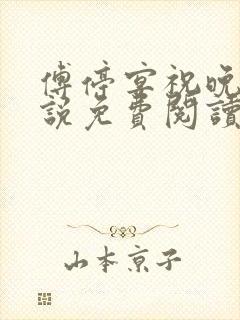 傅停宴祝晚
說免費閱讀
山本京子